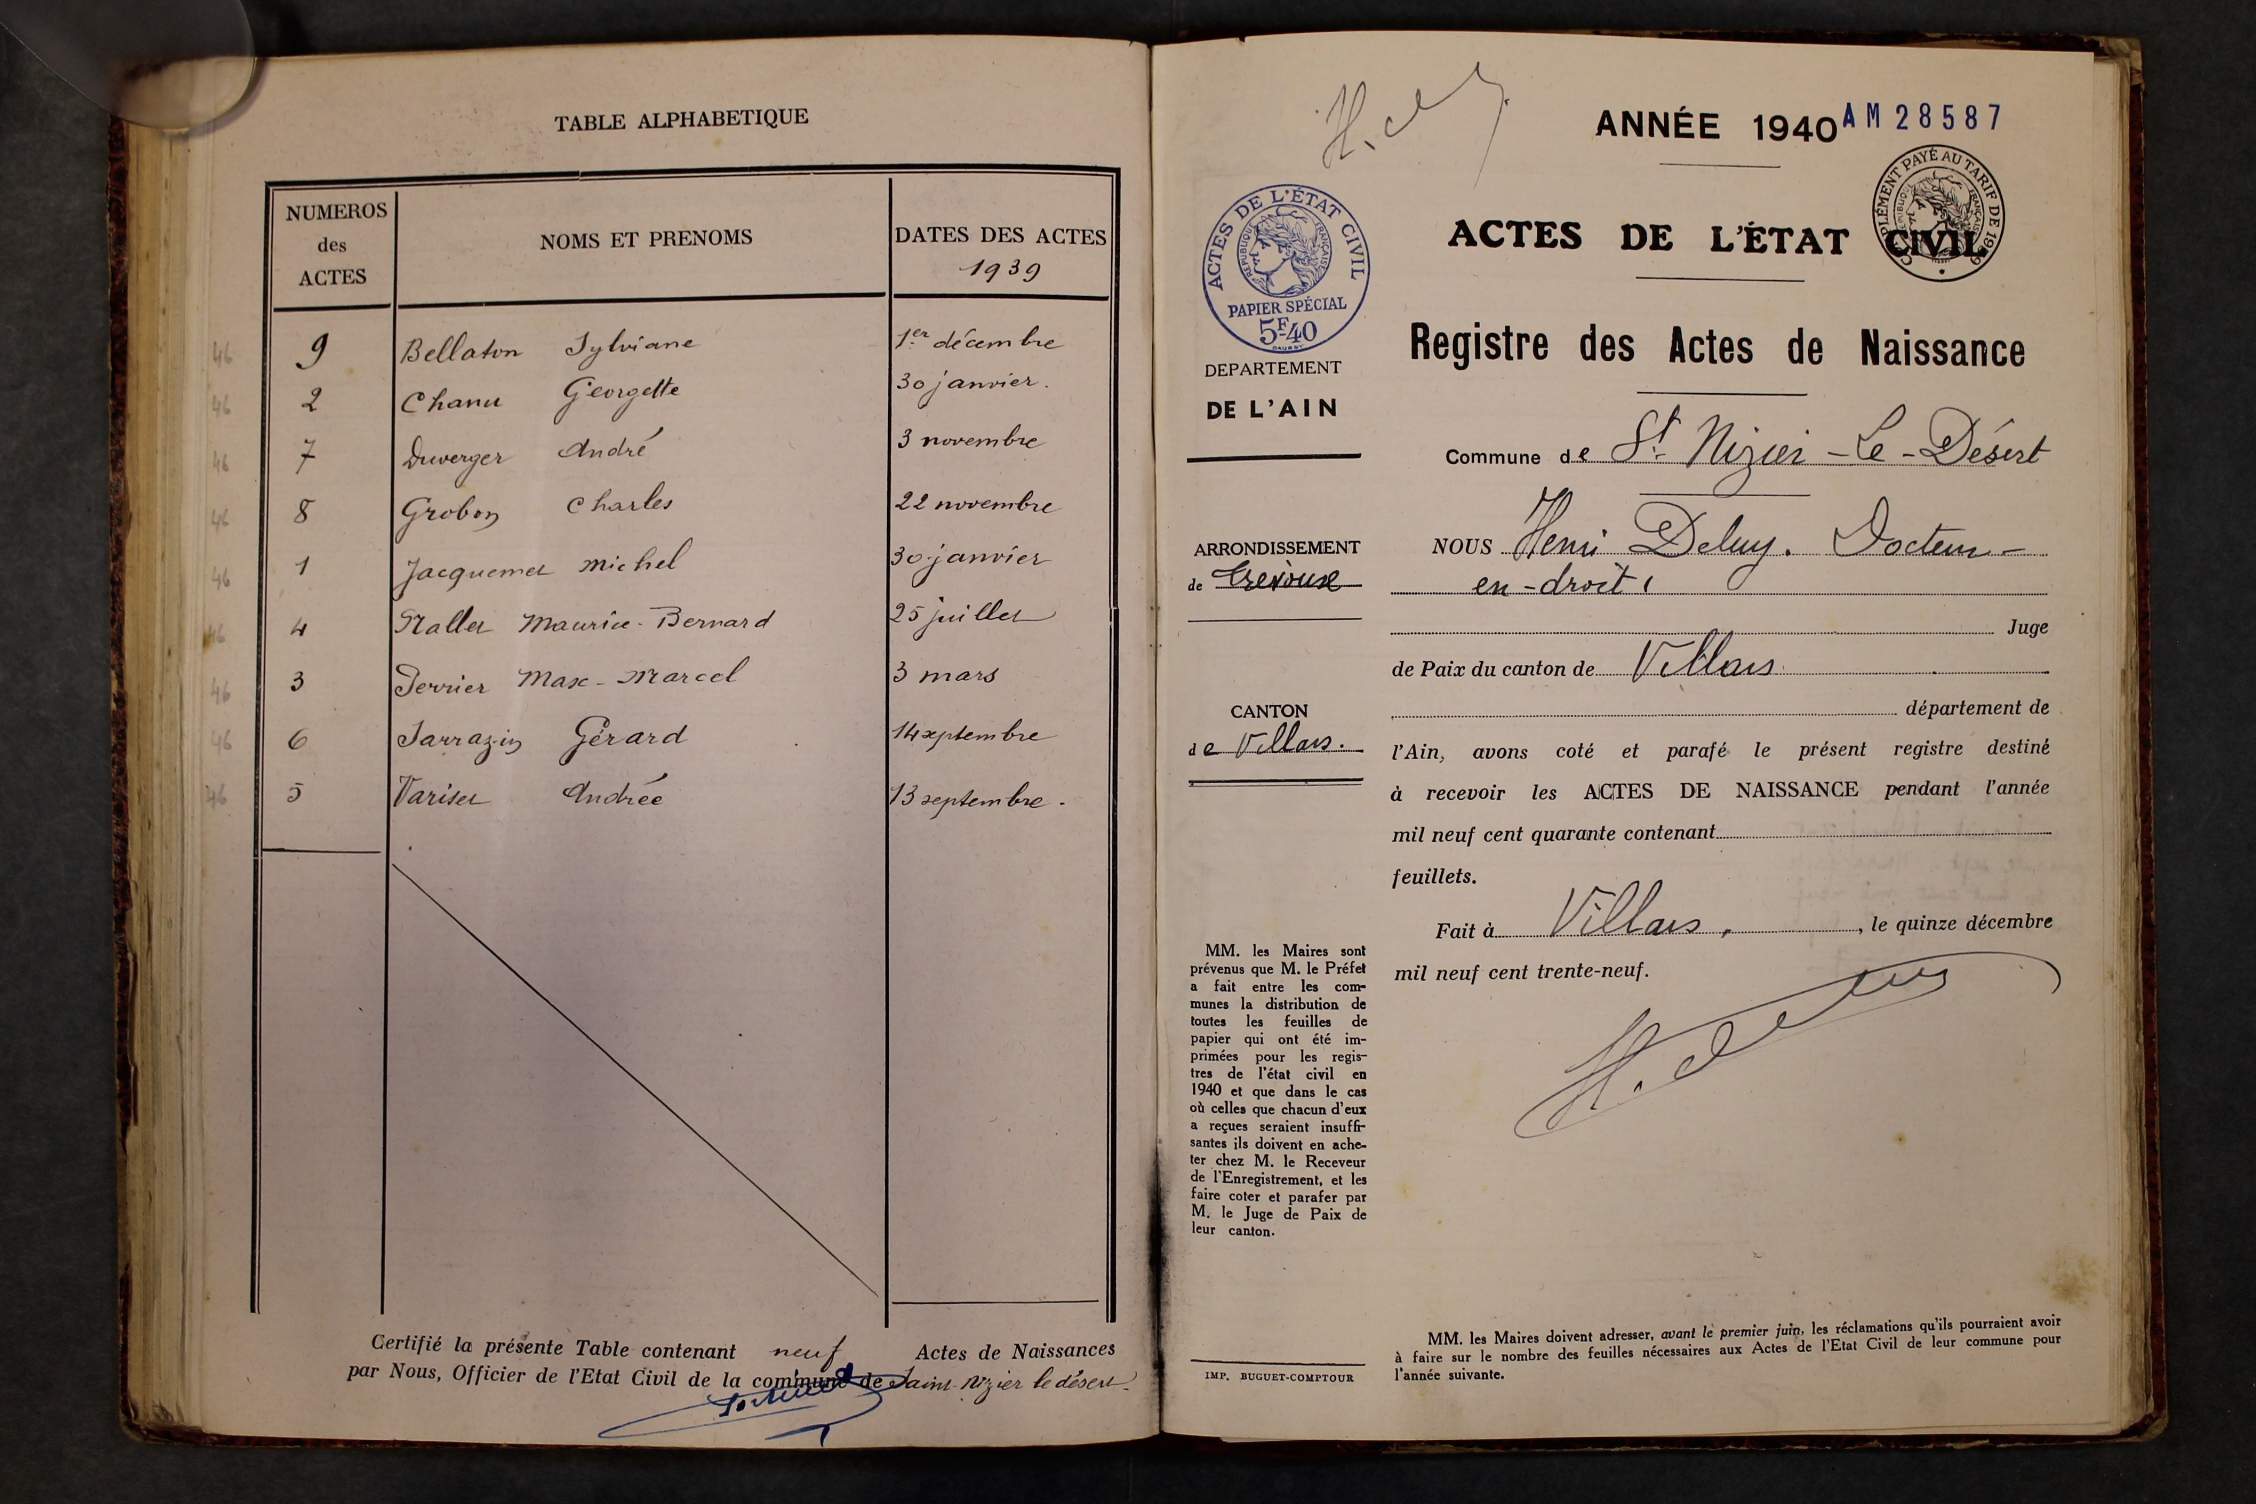 TABLE ALPHABETIQUE
NUMEROS
des
ACTES
NOMS ET PRENOMS
DATES DES ACTES
1939
46 9 Bellaton Sylviane 1er décembre
46 2 Chanu Georgette 30 janvier.
46 7 Duverger André 3 novembre
46 8 Grobon Charles 22 novembre
46 1 Jacquemet Michel 30 janvier
46 4 Nallet Maurice-Bernard 25 juillet
46 3 Perrier Max-Marcel 3 mars
46 6 Sarrazin Gérard 14 septembre
46 5 Variset Andrée 13 septembre.
Certifié la présente Table contenant neuf Actes de Naissances
par Nous, Officier de l'Etat Civil de la commune de Saint-Nizier le désert.
ANNÉE 1940
AM 28587
COMPLÉMENT PAYÉ AU TARIF DE 1939
RÉPUBLIQUE FRANÇAISE
ACTES DE L'ÉTAT CIVIL
Registre des Actes de Naissance
ACTES DE L'ÉTAT CIVIL
RÉPUBLIQUE FRANÇAISE
PAPIER SPÉCIAL
5F40
DEPARTEMENT
DE L'AIN
ARRONDISSEMENT
de Trévoux
CANTON
de Villars.
MM. les Maires sont
prévenus que M. le Préfet
a fait entre les com-
munes la distribution de
toutes les feuilles de
papier qui ont été im-
primées pour les regis-
tres de l'état civil en
1940 et que dans le cas
où celles que chacun d'eux
a reçues seraient insuffi-
santes ils doivent en ache-
ter chez M. le Receveur
de l'Enregistrement, et les
faire coter et parafer par
M. le Juge de Paix de
leur canton.
IMP. BUGUET-COMPTOUR
Commune de St Nizier-Le-Désert
NOUS Henri Deluy. Docteur-
en-droit,
Juge
de Paix du canton de Villars
département de
l'Ain, avons coté et parafé le présent registre destiné
à recevoir les ACTES DE NAISSANCE pendant l'année
mil neuf cent quarante contenant
feuillets.
Fait à Villars, , le quinze décembre
mil neuf cent trente-neuf.
MM. les Maires doivent adresser, avant le premier juin, les réclamations qu'ils pourraient avoir
à faire sur le nombre des feuilles nécessaires aux Actes de l'Etat Civil de leur commune pour
l'année suivante.